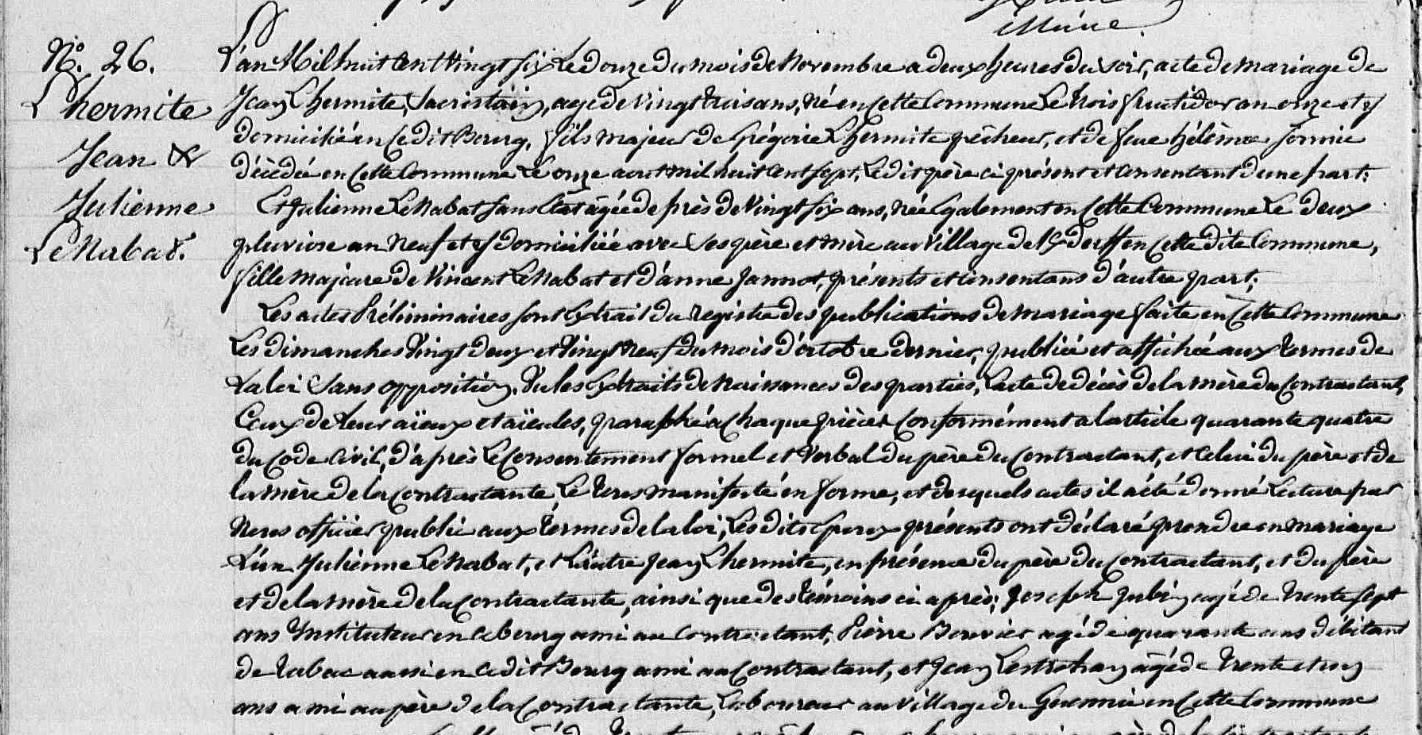 Maire.
N°. 26.
Lhermite
Jean &
Julienne
Le Nabat.
L'an Mil huit Cent Vingt Six Le douze du mois de Novembre a deux heures du soir, acte de mariage de
Jean Lhermite, Sacristain, agé de Vingt trois ans, né en Cette Commune Le trois fructidor an onze et y
domicilié en Cedit Bourg, fils majeur de Grégoire Lhermite pêcheur, et de feue héléine
décédée en Cette Commune Le onze aout mil huit Cent Sept, Ledit père ci présent et Consentant d'une part;
Et Julienne Le Nabat Sans Etat âgée de près de Vingt Six ans, née également en Cette Commune Le deux
pluviose an neuf et y domiciliée avec Ses père et mère au Village de en Cette dite Commune,
fille majeure de Vincent Le Nabat et d'anne Jannot, présents et Consentans d'autre part;
Les actes Préliminaires Sont Extrait du registre des publications de mariage faite en Cette Commune
Les dimanches Vingt deux et Vingt Neuf du mois d'octobre dernier, publiée et affichée aux termes de
La loi Sans opposition, Vu les Extraits de Naissances des parties, L'acte de décès de la mère du Contractant,
Ceux de Leurs aïeux et aïeules, paraphé à Chaque pièces Conformément a L'article quarante quatre
du Code Civil, d'après Le Consentement formel et Verbal du père du Contractant, et Celui du père et de
la mère de la Contractante Le tous manifesté en forme, et desquels actes il a été donné Lecture par
Nous officier public aux termes de la loi, Les dits Epoux présents ont déclaré prendre en mariage
L'un Julienne Le Nabat, et L'autre Jean Lhermite, en présence du père du Contractant, et du père
et de la mère de la Contractante, ainsi que des témoins ci après; Joseph Jubin agé de trente Sept
ans Instituteur en Ce bourg ami au Contractant, Pierre Bouvier agé de quarante ans débitant
de tabac aussi en Cedit Bourg ami au Contractant, et Jean Lestrohan âgé de trente et un
ans ami au père de la Contractante, Laboureur au Village du en Cette Commune